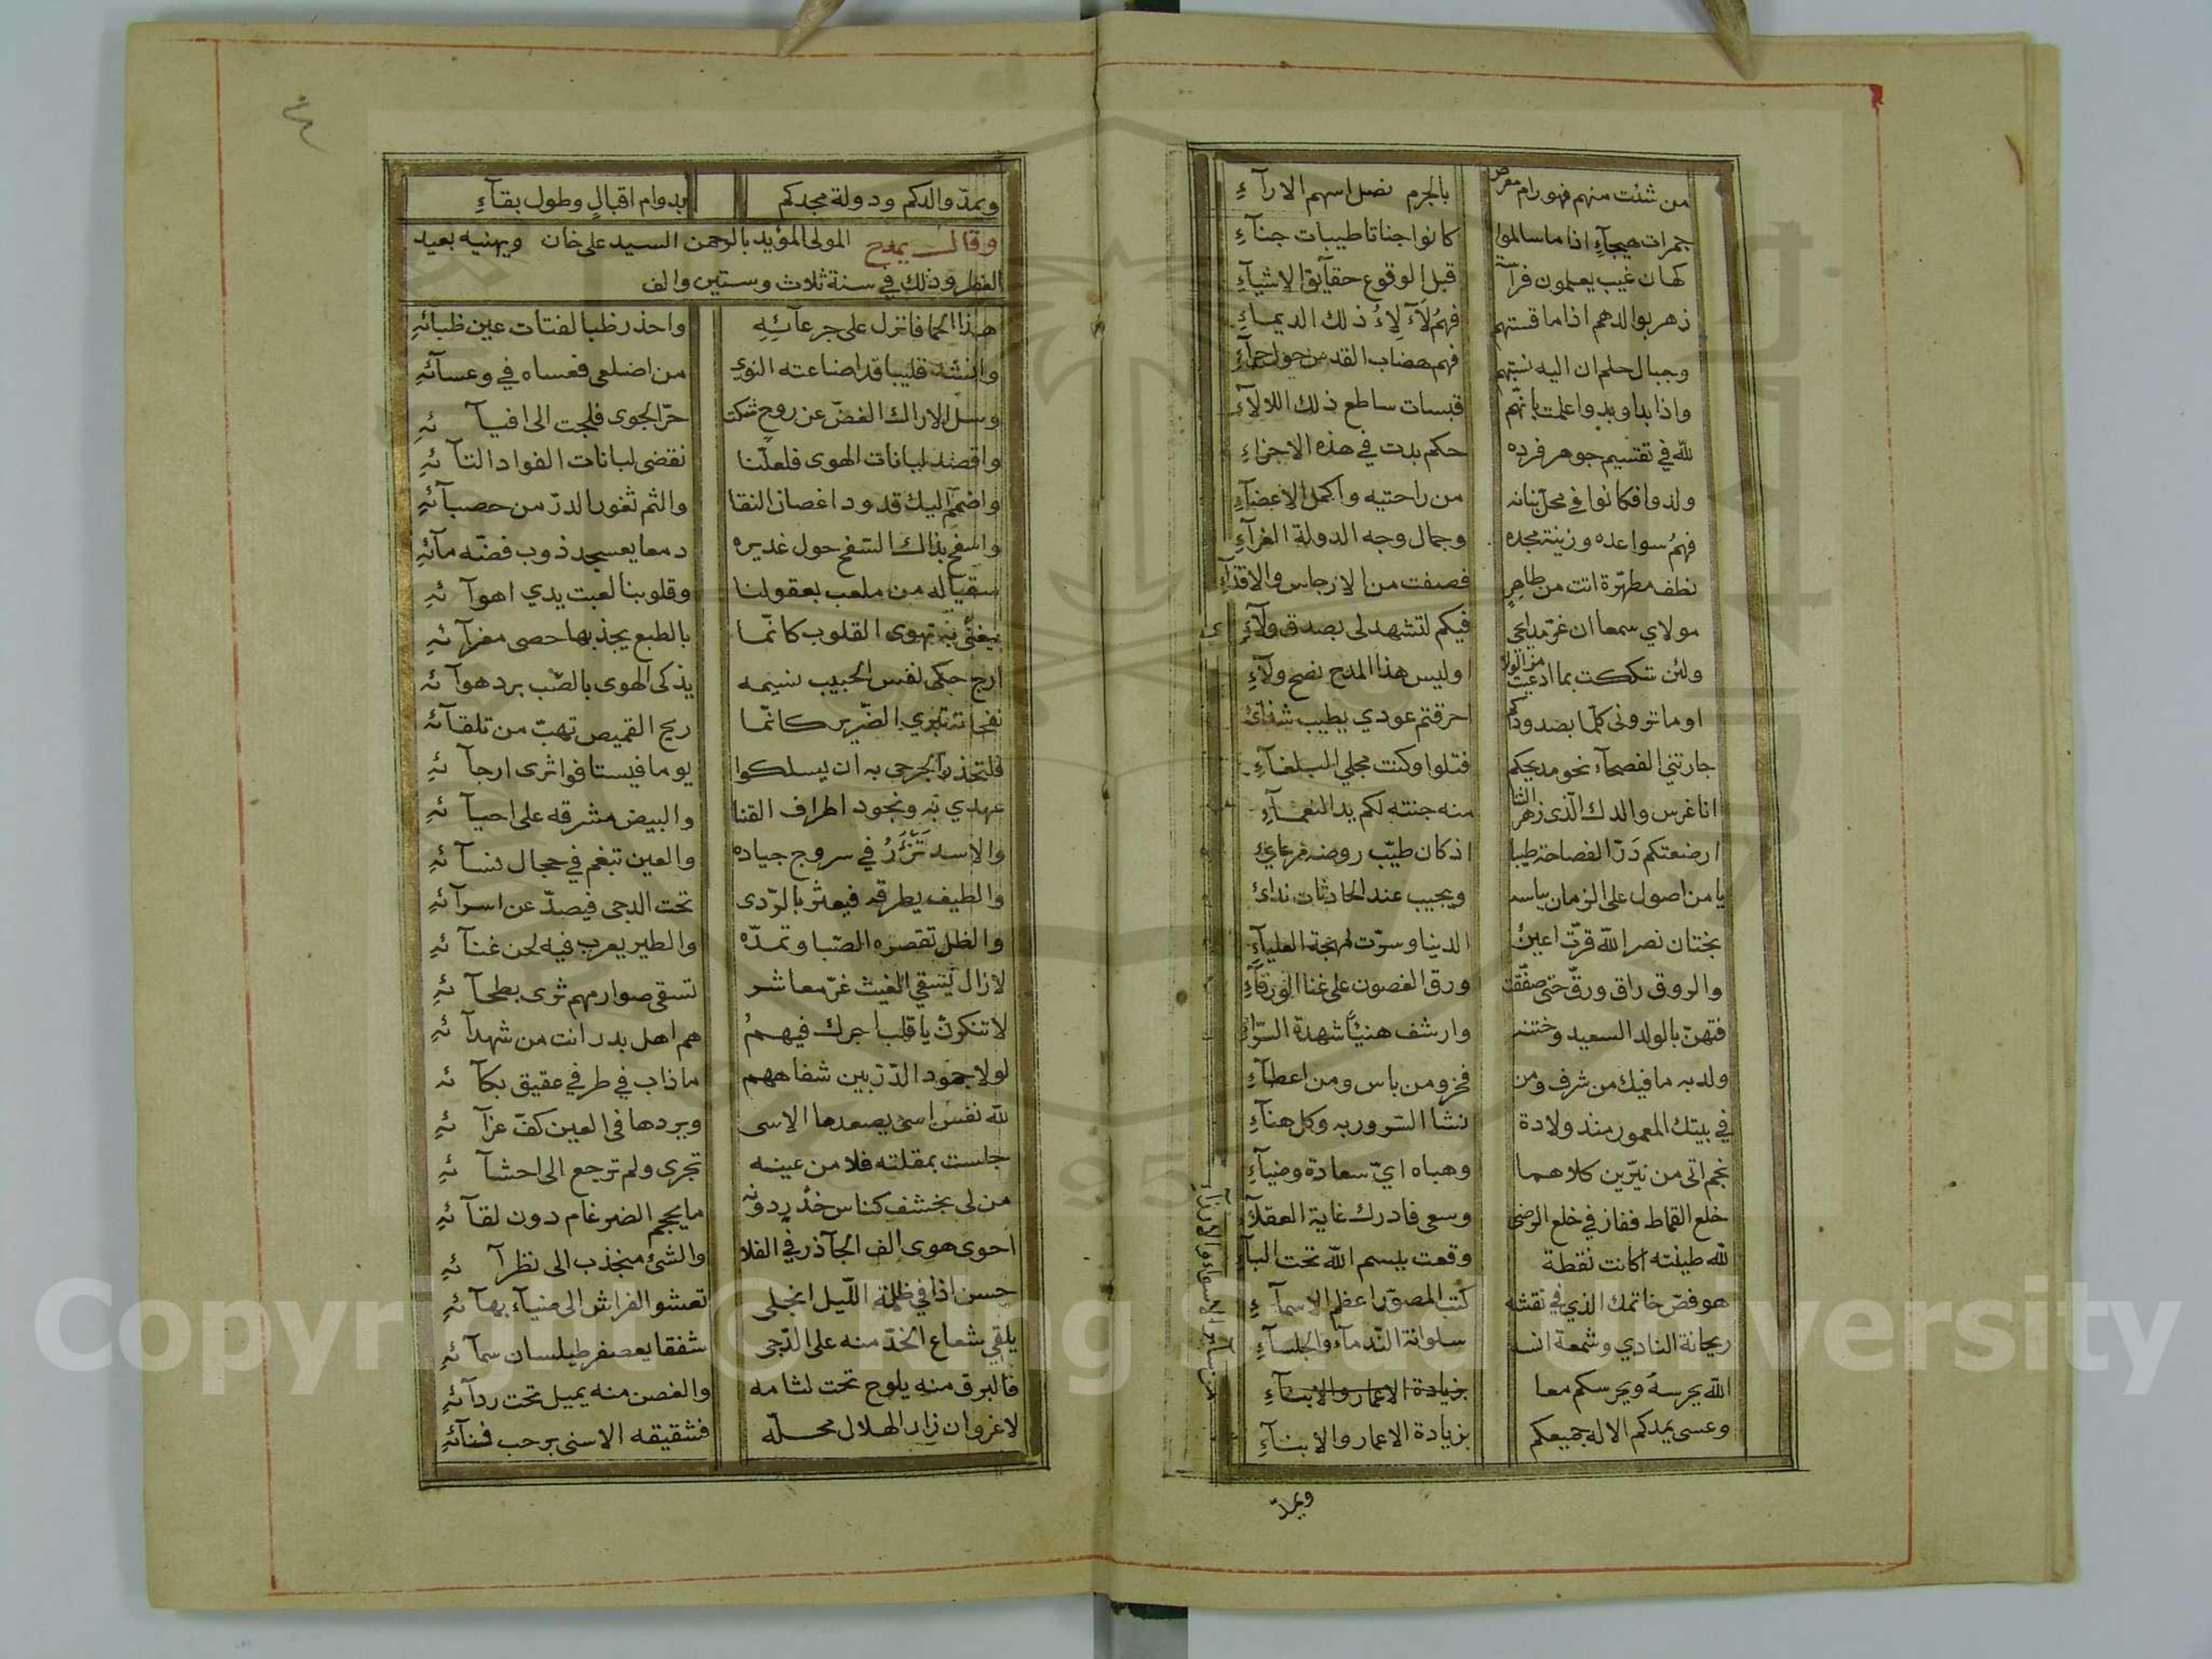 من شئت منهم فهو رام معرض بالجرم نصل اسهم الارآءِ
جمرات هيجآءِ اذا ما سالموا كانوا جناتا طيبات جنآءِ
كهان غيب يعلمون فراسة قبل الوقوع حقآئق الاشيآءِ
زهر بوالدهم اذا ما قستهم فهمُ لآلِئُ ذلك الديماءِ
وجبال حلم ان اليه نسبتهم فهم هضاب القدس حول حرآءِ
واذا بدا وبدوا علمت بانّهم قبسات ساطع ذلك اللالآءِ
لله في تقسيم جوهر فرده حكم بدت في هذه الاجزاءِ
ولدوا فكانوا في محل بنانه من راحتيه واكمل الاعضآءِ
فهمُ سواعده وزينة مجده وجمال وجه الدولة الغرآءِ
نطف مطهّرة اتت من طاهرٍ فصفت من الارجاس والاقذآءِ
مولاي سمعا ان غرّ مدايحي فيكم لتشهد لى بصدق ولآءِ
ولئن شككت بما ادعيت من الولا اوليس هذا المدح نصح ولآءِ
او ما تروني كلّما بصدودكم احرقتم عودي يطيب شذائ
جارتني الفصحآء نحو مديحكم فتلوا وكنت مجلي البلغآءِ
انا غرس والدك الّذى زهر الثنا منه جنته لكم يد النعمآءِ
ارضعتكم دَرّ الفصاحة طيبا اذ كان طيّب روضه مرعاي
يا من اصول على الزمان بباسه ويجيب عند الحادثات ندائ
بختان نصر الله قرّت اعين الدنيا وسرّت مهجة العليآءِ
والروق راق ورقّ حتى صفّقت ورق الغصون على غنا الورقآءِ
فتهنّ بالولد السعيد وختنه وارشف هنيئًا شهدة السّرّاءِ
ولد به ما فيك من شرف ومن فخر ومن باس ومن اعطآءِ
في بيتك المعمور منذ ولادة نشا السّرور به وكل هنآءِ
نجم اتى من نيّرين كلاهما وهباه ايّ سعادة وضيآءِ
خلع القماط ففاز في خلع الرضى وسعى فادرك غاية العقلآءِ
لله طينته اكانت نقطة وقعت ببسم الله تحت البآءِ
هو فصّ خاتمك الذي في نقشه كتب المصوّر اعظم الاسمآءِ
ريحانة النادي وشمعة انسه سلوانة النّدمآء والجلسآءِ
الله يحرسهُ ويحرسكم معا بزيادة الاعمار والابنآءِ
من سآئر الاسواء والارزآءِ
وعسى يمدكم الاله جميعكم بزيادة الاعمار والابنآءِ
ويمدّ
ويمدّ والدكم ودولة مجدكم بدوام اقبالٍ وطول بقآءِ
وقال يمدح المولى المؤيد بالرحمن السيد على خان ويهنيه بعيد
الفطر وذلك في سنة ثلاث وستين والف
هذا الحما فانزل على جرعآئِهِ واحذر ظبا لفتات عين ظبائهِ
وانشد قليبا قد اضاعته النوى من اضلعى فعساه في وعسآئهِ
وسل الاراك الغضّ عن روح شكت حرّ الجوى فلجت الى افيآئهِ
واقصد لبانات الهوى فلعلّنا نقضى لبانات الفواد النآئهِ
واضمم اليك قدود اغصان النقا والثم ثغور الدرّ من حصبآئهِ
واسفح بذاك السّفح حول غديره دمعا يعسجد ذوب فضّه مآئهِ
سقيا له من ملعب بعقولنا وقلوبنا لعبت يدي اهوآئهِ
بالطبع يجذبها حصى مغرآئهِ
ارج حكى نفس الحبيب نسيمه يذكى الهوى بالصّب برد هوآئه
نفحاته تبري الضّرير كانّما ريح القميص تهبّ من تلقآئه
فلتحذر الجرحى به ان يسلكوا يوما فيستافوا ثرى ارجآئهِ
عهدي به ونجود اطراف القنا والبيض مشرقه على احيآئهِ
والاسد تَزْأَرُ في سروج جياده والعين تبغم في حجال نسآئهِ
والطيف يطرقه فيعثر بالرّدى تحت الدجى فيصدّ عن اسرآئهِ
والظل تقصره الصّبا وتمدّه والطير يعرب فيه لحن غنآئهِ
لازال يسقي الغيث غرّ معاشر تسقى صوارمهم ثرى بطحآئهِ
لا تنكرنّ يا قلب اجرك فيهمُ هم اهل بدر انت من شهدآئهِ
لولا جمود الدّرّ بين شفاههم ما ذاب في طرفي عقيق بكآئه
لله نفس اسى يصعدها الاسى ويردها فى العين كفّ عزآئهِ
جلست بمقلته فلا من عينه تجرى ولم ترجع الى احشآئهِ
من لى بخشف كناس خدر دونه ما يحجم الضرغام دون لقآئهِ
احوى هوى الف الجآذر في الفلا والشئ منجذب الى نظرآئهِ
حسن اذا في ظلمة اللّيل انجلى تعشو الفراش الى ضيآء بهآئهِ
يلقي شعاع الخدّ منه على الدّجى شفقا يعصفر طيلسان سمآئهِ
فالبرق منه يلوح تحت لثامه والغصن منه يميل تحت ردآئهِ
لاغرو ان زار الهلال محلّه فشقيقه الاسنى برحب فنآئهِ
Copyright © King Saud University